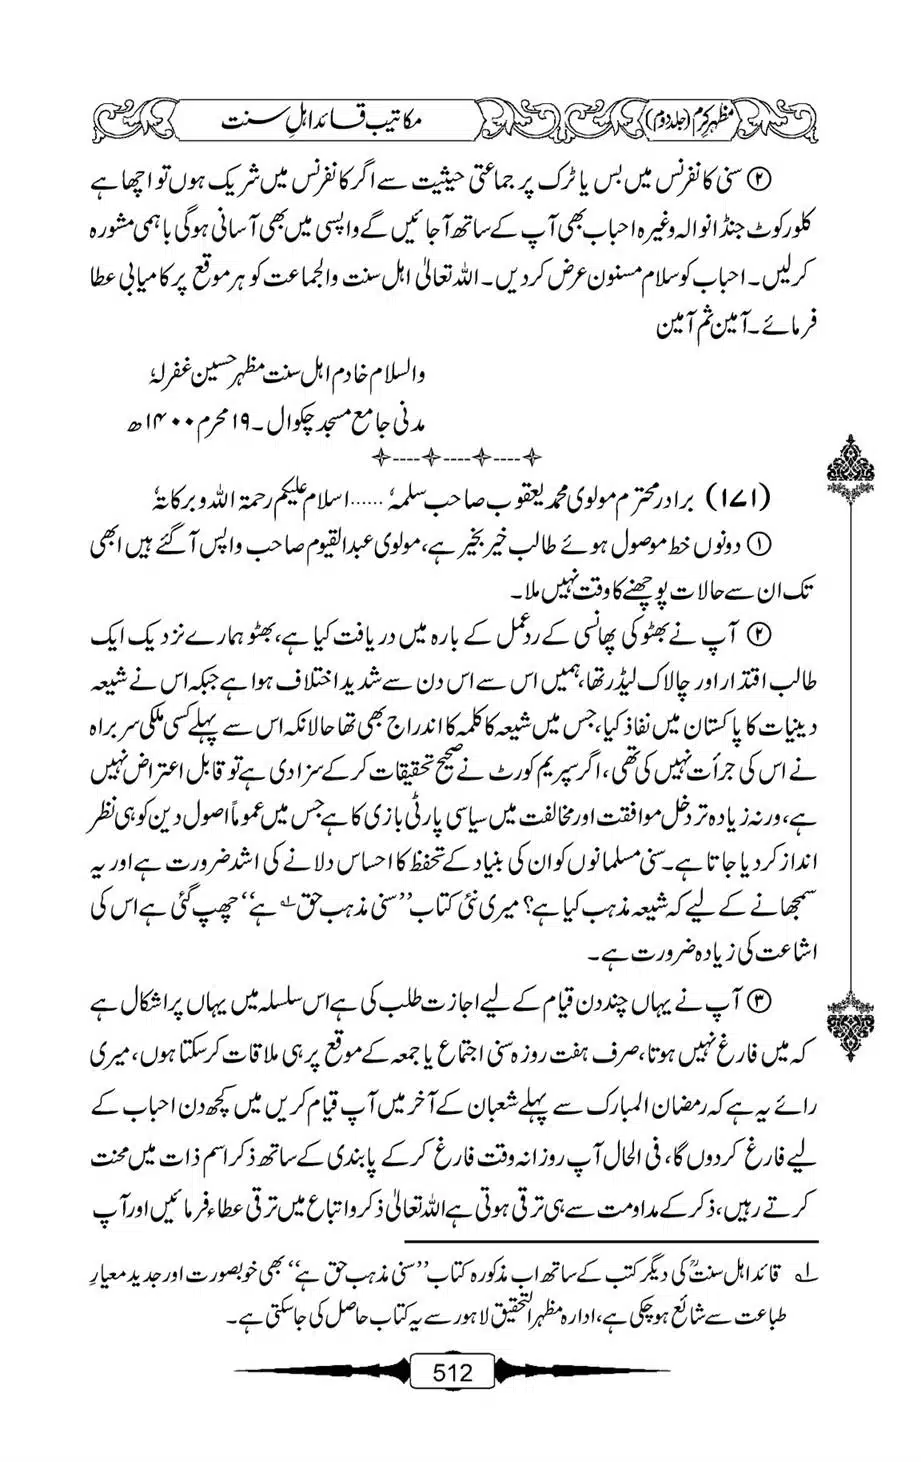 مظہرِ کرم (جلد دوم)
مکاتیب قائد اہل سنت
② سنی کانفرنس میں بس یا ٹرک پر جماعتی حیثیت سے اگر کانفرنس میں شریک ہوں تو اچھا ہے
کلورکوٹ جنڈانوالہ وغیرہ احباب بھی آپ کے ساتھ آجائیں گے واپسی میں بھی آسانی ہوگی باہمی مشورہ
کرلیں۔ احباب کو سلام مسنون عرض کردیں۔ اللہ تعالیٰ اہل سنت والجماعت کو ہر موقع پر کامیابی عطا
فرمائے۔ آمین ثم آمین
والسلام خادم اہل سنت مظہر حسین غفرلہٗ
مدنی جامع مسجد چکوال۔ ۱۹ محرم ۱۴۰۰ھ
(۱۷۱) برادر محترم مولوی محمد یعقوب صاحب سلمہٗ ...... اسلام علیکم رحمۃ اللہ وبرکاتہٗ
① دونوں خط موصول ہوئے طالب خیر بخیر ہے، مولوی عبدالقیوم صاحب واپس آگئے ہیں ابھی
تک ان سے حالات پوچھنے کا وقت نہیں ملا۔
② آپ نے بھٹو کی پھانسی کے ردعمل کے بارہ میں دریافت کیا ہے، بھٹو ہمارے نزدیک ایک
طالب اقتدار اور چالاک لیڈر تھا، ہمیں اس سے اس دن سے شدید اختلاف ہوا ہے جبکہ اس نے شیعہ
دینیات کا پاکستان میں نفاذ کیا، جس میں شیعہ کا کلمہ کا اندراج بھی تھا حالانکہ اس سے پہلے کسی ملکی سربراہ
نے اس کی جرأت نہیں کی تھی، اگر سپریم کورٹ نے صحیح تحقیقات کرکے سزا دی ہے تو قابل اعتراض نہیں
ہے، ورنہ زیادہ تر دخل موافقت اور مخالفت میں سیاسی پارٹی بازی کا ہے جس میں عموماً اصول دین کو ہی نظر
انداز کردیا جاتا ہے۔ سنی مسلمانوں کو ان کی بنیاد کے تحفظ کا احساس دلانے کی اشد ضرورت ہے اور یہ
سمجھانے کے لیے کہ شیعہ مذہب کیا ہے؟ میری نئی کتاب ’’سنی مذہب حق ؎۱ ہے‘‘ چھپ گئی ہے اس کی
اشاعت کی زیادہ ضرورت ہے۔
③ آپ نے یہاں چند دن قیام کے لیے اجازت طلب کی ہے اس سلسلہ میں یہاں پر اشکال ہے
کہ میں فارغ نہیں ہوتا، صرف ہفت روزہ سنی اجتماع یا جمعہ کے موقع پر ہی ملاقات کرسکتا ہوں، میری
رائے یہ ہے کہ رمضان المبارک سے پہلے شعبان کے آخر میں آپ قیام کریں میں کچھ دن احباب کے
لیے فارغ کردوں گا، فی الحال آپ روزانہ وقت فارغ کرکے پابندی کے ساتھ ذکر اسم ذات میں محنت
کرتے رہیں، ذکر کے مداومت سے ہی ترقی ہوتی ہے اللہ تعالیٰ ذکر و اتباع میں ترقی عطاء فرمائیں اور آپ
؎۱ قائد اہل سنتؒ کی دیگر کتب کے ساتھ اب مذکورہ کتاب ’’سنی مذہب حق ہے‘‘ بھی خوبصورت اور جدید معیارِ
طباعت سے شائع ہوچکی ہے، ادارہ مظہر التحقیق لاہور سے یہ کتاب حاصل کی جاسکتی ہے۔
512